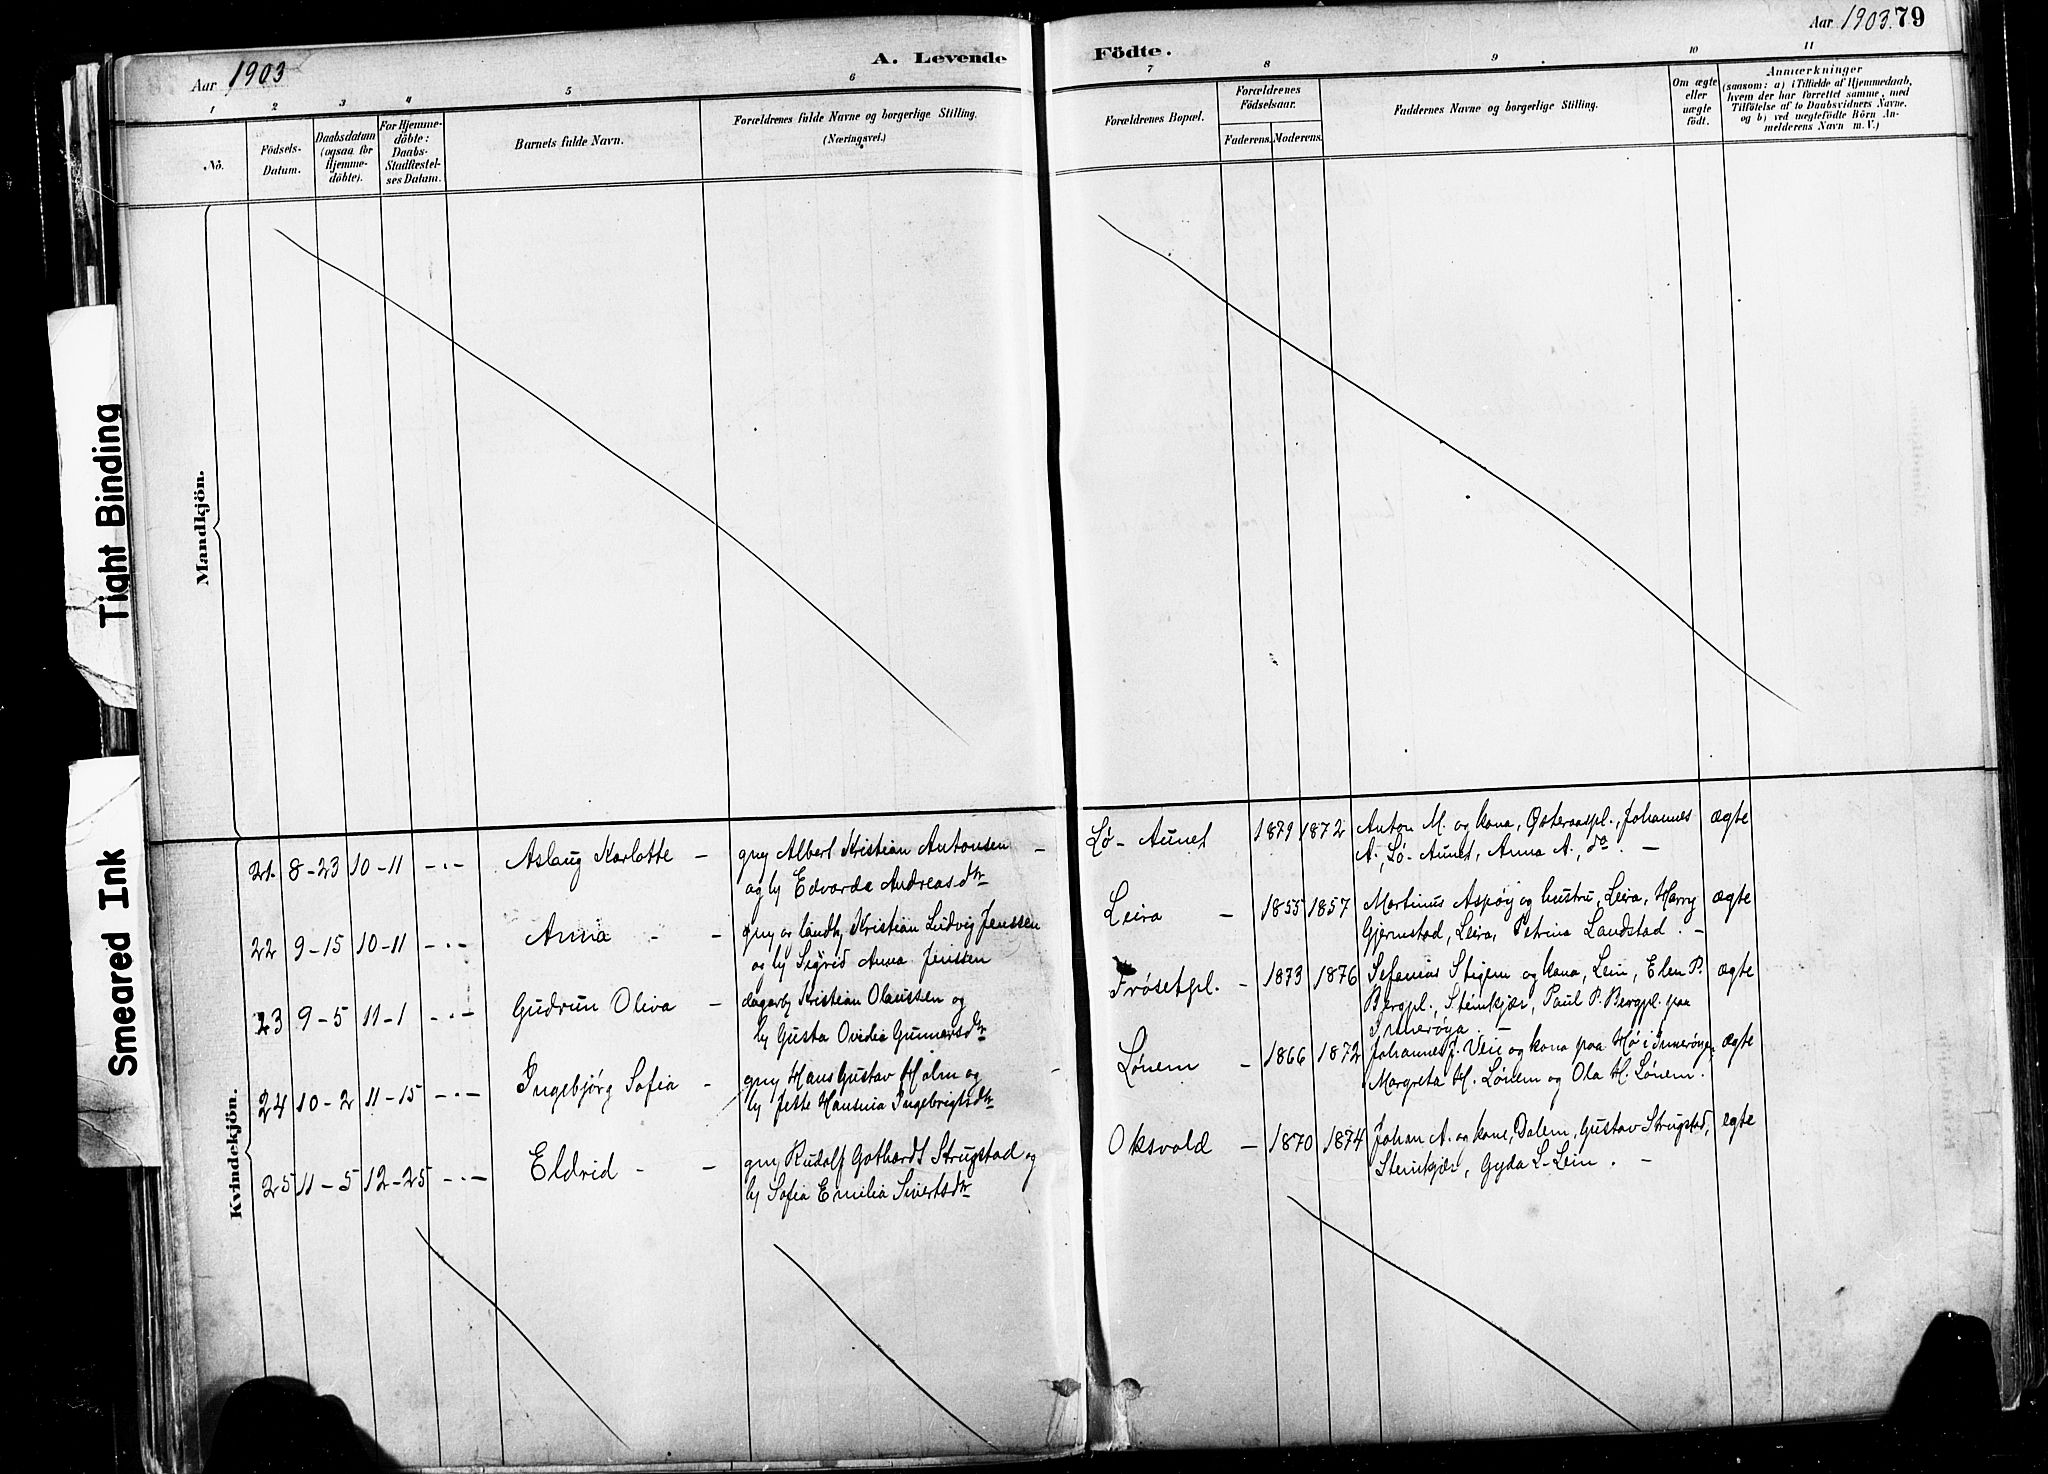 Aar 1903
A. Levende
Födte.
Aar 1903. 79
1 2 3 4 5 6 7 8 9 10 11
No.
Födsels-
Datum.
Daabsdatum
(ogsaa for
Hjemme-
döbte).
For Hjemme-
döbte:
Daabs-
Stadfæstel-
ses Datum.
Barnets fulde Navn.
Forældrenes fulde Navne og borgerlige Stilling.
(Næringsvei.)
Forældrenes Bopæl.
Forældrenes
Födselsaar.
Faderens. Moderens.
Faddernes Navne og borgerlige Stilling.
Om ægte
eller
uægte
födt.
Anmærkninger
(saasom: a) i Tilfælde af Hjemmedaab,
hvem der har forrettet samme, med
Tilföielse af to Daabsvidners Navne,
og b) ved uægtefödte Börn An-
melderens Navn m. V.)
Mandkjön.
Tight Binding
Smeared Ink
Kvindekjön.
21. 8-23 10-11 -.- Aslaug Karlotte - gmj Albert Kristian Antonsen - Lø-Aunet 1879 1872 Anton M. og kona, Østeraaspl., Johannes ægte
og hj Edvarda Andreasdtr A., Lø-Aunet, Anna A., do. -
22 9-15 10-11 -.- Anna - - gmj og landh. Kristian Ludvig Jenssen Leira - 1855 1857 Martinus Aspøy og hustru, Leira, Harry ægte
og hj Sigrid Anna Jenssen Gjermstad, Leira, Petrina Landstad. -
23 9-5 11-1 -.- Gudrun Oliva - dagarb Kristian Olaussen og Frøsetpl. - 1873 1876 Sefanias Stigem og kona, Lein, Elen P. ægte
hj Gusta Ovidia Gunnarsdtr Bergpl., Steinkjær, Paul P. Bergpl. paa
Inderøya. -
24 10-2 11-15 -.- Ingebjørg Sofia - gmj Hans Gustav Holm og - Lønem - 1866 1872 Johannes J. og kona paa Hø i Inderøyen, ægte
hj Jette Hansina Ingebrigtsdtr Margreta H. Lønem og Ola H. Lønem.
25 11-5 12-25 -.- Eldrid - - gmj Rudolf Gothardt Strugstad og Oksvold - 1870 1874 Johan A. og kone, Dalem, Gustav Strugstad, egte
hj Sofia Emilia Sivertsdtr Steinkjær, Gyda L-Lein. -